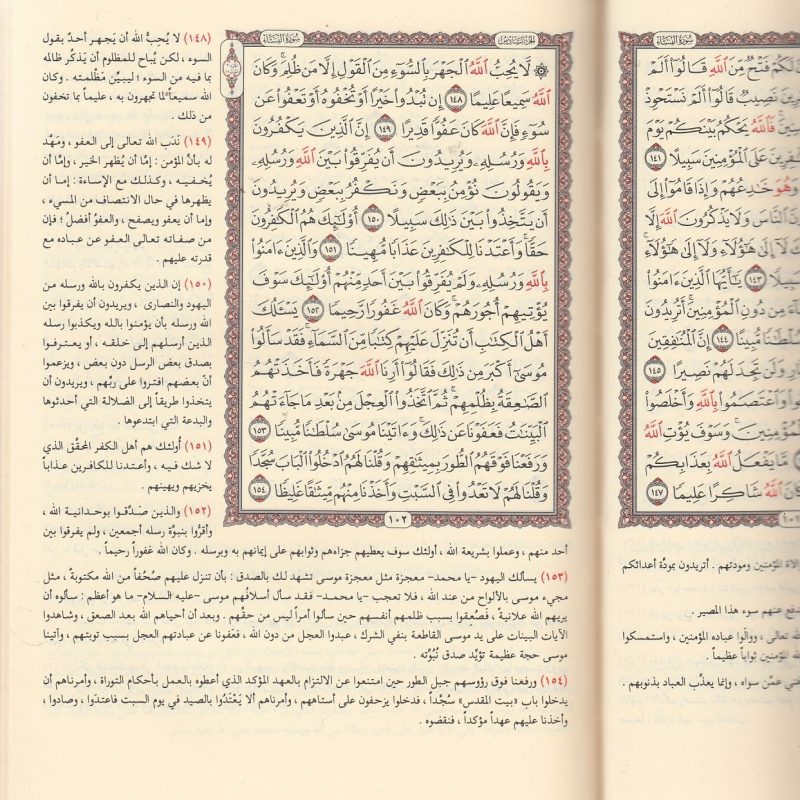 سُورَةُ النِّسَاءِ
لَكُمْ فَتْحٌ مِّنَ ٱللَّهِ قَالُوٓا۟ أَلَمْ
فِرِينَ نَصِيبٌ قَالُوٓا۟ أَلَمْ نَسْتَحْوِذْ
فَٱللَّهُ يَحْكُمُ بَيْنَكُمْ يَوْمَ
فِرِينَ عَلَى ٱلْمُؤْمِنِينَ سَبِيلًا ١٤١
وَهُوَ خَٰدِعُهُمْ وَإِذَا قَامُوٓا۟ إِلَى
ونَ ٱلنَّاسَ وَلَا يَذْكُرُونَ ٱللَّهَ إِلَّا
لَآ إِلَىٰ هَٰٓؤُلَآءِ وَلَآ إِلَىٰ هَٰٓؤُلَآءِ
سَبِيلًا ١٤٣ يَٰٓأَيُّهَا ٱلَّذِينَ ءَامَنُوا۟
ءَ مِن دُونِ ٱلْمُؤْمِنِينَ أَتُرِيدُونَ
سُلْطَٰنًا مُّبِينًا ١٤٤ إِنَّ ٱلْمُنَٰفِقِينَ
وَلَن تَجِدَ لَهُمْ نَصِيرًا ١٤٥
وَٱعْتَصَمُوا۟ بِٱللَّهِ وَأَخْلَصُوا۟
ٱلْمُؤْمِنِينَ وَسَوْفَ يُؤْتِ ٱللَّهُ
مَّا يَفْعَلُ ٱللَّهُ بِعَذَابِكُمْ
ٱللَّهُ شَاكِرًا عَلِيمًا ١٤٧
لاة المؤمنين ومودتهم . أتريدون بمودّة أعدائكم
فع عنهم سوء هذا المصير .
لله تعالى ، ووالَوا عباده المؤمنين ، واستمسكوا
لله المؤمنين ثواباً عظيماً .
غني عمَّن سواه ، وإنما يعذّب العباد بذنوبهم .
الجزء السادس سُورَةُ النِّسَاءِ
۞ لَّا يُحِبُّ ٱللَّهُ ٱلْجَهْرَ بِٱلسُّوٓءِ مِنَ ٱلْقَوْلِ إِلَّا مَن ظُلِمَ وَكَانَ
ٱللَّهُ سَمِيعًا عَلِيمًا ١٤٨ إِن تُبْدُوا۟ خَيْرًا أَوْ تُخْفُوهُ أَوْ تَعْفُوا۟ عَن
سُوٓءٍ فَإِنَّ ٱللَّهَ كَانَ عَفُوًّا قَدِيرًا ١٤٩ إِنَّ ٱلَّذِينَ يَكْفُرُونَ
بِٱللَّهِ وَرُسُلِهِۦ وَيُرِيدُونَ أَن يُفَرِّقُوا۟ بَيْنَ ٱللَّهِ وَرُسُلِهِۦ
وَيَقُولُونَ نُؤْمِنُ بِبَعْضٍ وَنَكْفُرُ بِبَعْضٍ وَيُرِيدُونَ
أَن يَتَّخِذُوا۟ بَيْنَ ذَٰلِكَ سَبِيلًا ١٥٠ أُو۟لَٰٓئِكَ هُمُ ٱلْكَٰفِرُونَ
حَقًّا وَأَعْتَدْنَا لِلْكَٰفِرِينَ عَذَابًا مُّهِينًا ١٥١ وَٱلَّذِينَ ءَامَنُوا۟
بِٱللَّهِ وَرُسُلِهِۦ وَلَمْ يُفَرِّقُوا۟ بَيْنَ أَحَدٍ مِّنْهُمْ أُو۟لَٰٓئِكَ سَوْفَ
يُؤْتِيهِمْ أُجُورَهُمْ وَكَانَ ٱللَّهُ غَفُورًا رَّحِيمًا ١٥٢ يَسْـَٔلُكَ
أَهْلُ ٱلْكِتَٰبِ أَن تُنَزِّلَ عَلَيْهِمْ كِتَٰبًا مِّنَ ٱلسَّمَآءِ فَقَدْ سَأَلُوا۟
مُوسَىٰٓ أَكْبَرَ مِن ذَٰلِكَ فَقَالُوٓا۟ أَرِنَا ٱللَّهَ جَهْرَةً فَأَخَذَتْهُمُ
ٱلصَّٰعِقَةُ بِظُلْمِهِمْ ثُمَّ ٱتَّخَذُوا۟ ٱلْعِجْلَ مِنۢ بَعْدِ مَا جَآءَتْهُمُ
ٱلْبَيِّنَٰتُ فَعَفَوْنَا عَن ذَٰلِكَ وَءَاتَيْنَا مُوسَىٰ سُلْطَٰنًا مُّبِينًا ١٥٣
وَرَفَعْنَا فَوْقَهُمُ ٱلطُّورَ بِمِيثَٰقِهِمْ وَقُلْنَا لَهُمُ ٱدْخُلُوا۟ ٱلْبَابَ سُجَّدًا
وَقُلْنَا لَهُمْ لَا تَعْدُوا۟ فِى ٱلسَّبْتِ وَأَخَذْنَا مِنْهُم مِّيثَٰقًا غَلِيظًا ١٥٤
١٠٢
(١٤٨) لا يُحِبُّ الله أن يَجهر أحدٌ بقول
السوء ، لكن يُباح للمظلوم أن يَذكُر ظالمه
بما فيه من السوء ؛ ليبيِّن مَظْلمته . وكان
الله سميعاً لما تجهرون به ، عليماً بما تخفون
من ذلك .
(١٤٩) نَدَب الله تعالى إلى العفو ، ومَهَّد
له بأنَّ المؤمن : إمَّا أن يُظهر الخير ، وإمَّا أن
يُخفيه ، وكذلك مع الإساءة : إما أن
يظهرها في حال الانتصاف من المسيء ،
وإما أن يعفو ويصفح ، والعفوُ أفضلُ ؛ فإن
من صفاته تعالى العفو عن عباده مع
قدرته عليهم .
(١٥٠) إن الذين يكفرون بالله ورسله من
اليهود والنصارى ، ويريدون أن يفرقوا بين
الله ورسله بأن يؤمنوا بالله ويكذبوا رسله
الذين أرسلهم إلى خلقه ، أو يعترفوا
بصدق بعض الرسل دون بعض ، ويزعموا
أنَّ بعضهم افتروا على ربِّهم ، ويريدون أن
يتخذوا طريقاً إلى الضلالة التي أحدثوها
والبدعة التي ابتدعوها .
(١٥١) أُولئك هم أهل الكفر المحقّق الذي
لا شك فيه ، وأعتدنا للكافرين عذاباً
يخزيهم ويهينهم .
(١٥٢) والذين صَدَّقوا بوحدانية الله ،
وأقرُّوا بنبوَّة رسله أجمعين ، ولم يفرقوا بين
أحد منهم ، وعملوا بشريعة الله ، أولئك سوف يعطيهم جزاءهم وثوابهم على إيمانهم به وبرسله . وكان الله غفوراً رحيماً .
(١٥٣) يسألك اليهود -يا محمد- معجزة مثل معجزة موسى تشهد لك بالصدق : بأن تنزل عليهم صُحُفاً من الله مكتوبةً ، مثل
مجيء موسى بالألواح من عند الله ، فلا تعجب -يا محمد- فقد سأل أسلافُهم موسى -عليه السلام- ما هو أعظم : سألوه أن
يريهم الله علانيةً ، فصُعِقوا بسبب ظلمهم أنفسهم حين سألوا أمراً ليس من حقِّهم . وبعد أن أحياهم الله بعد الصعق ، وشاهدوا
الآيات البينات على يد موسى القاطعة بنفي الشرك ، عبدوا العجل من دون الله ، فعَفونا عن عبادتهم العجل بسبب توبتهم ، وآتينا
موسى حجة عظيمة تؤيِّد صدق نُبُوَّته .
(١٥٤) ورفعنا فوق رؤوسهم جبل الطور حين امتنعوا عن الالتزام بالعهد المؤكد الذي أعطوه بالعمل بأحكام التوراة ، وأمرناهم أن
يدخلوا باب «بيت المقدس» سُجَّداً ، فدخلوا يزحفون على أستاههم ، وأمرناهم ألا يَعْتَدُوا بالصيد في يوم السبت فاعتدَوا ، وصادوا ،
وأخذنا عليهم عهداً مؤكداً ، فنقضوه .